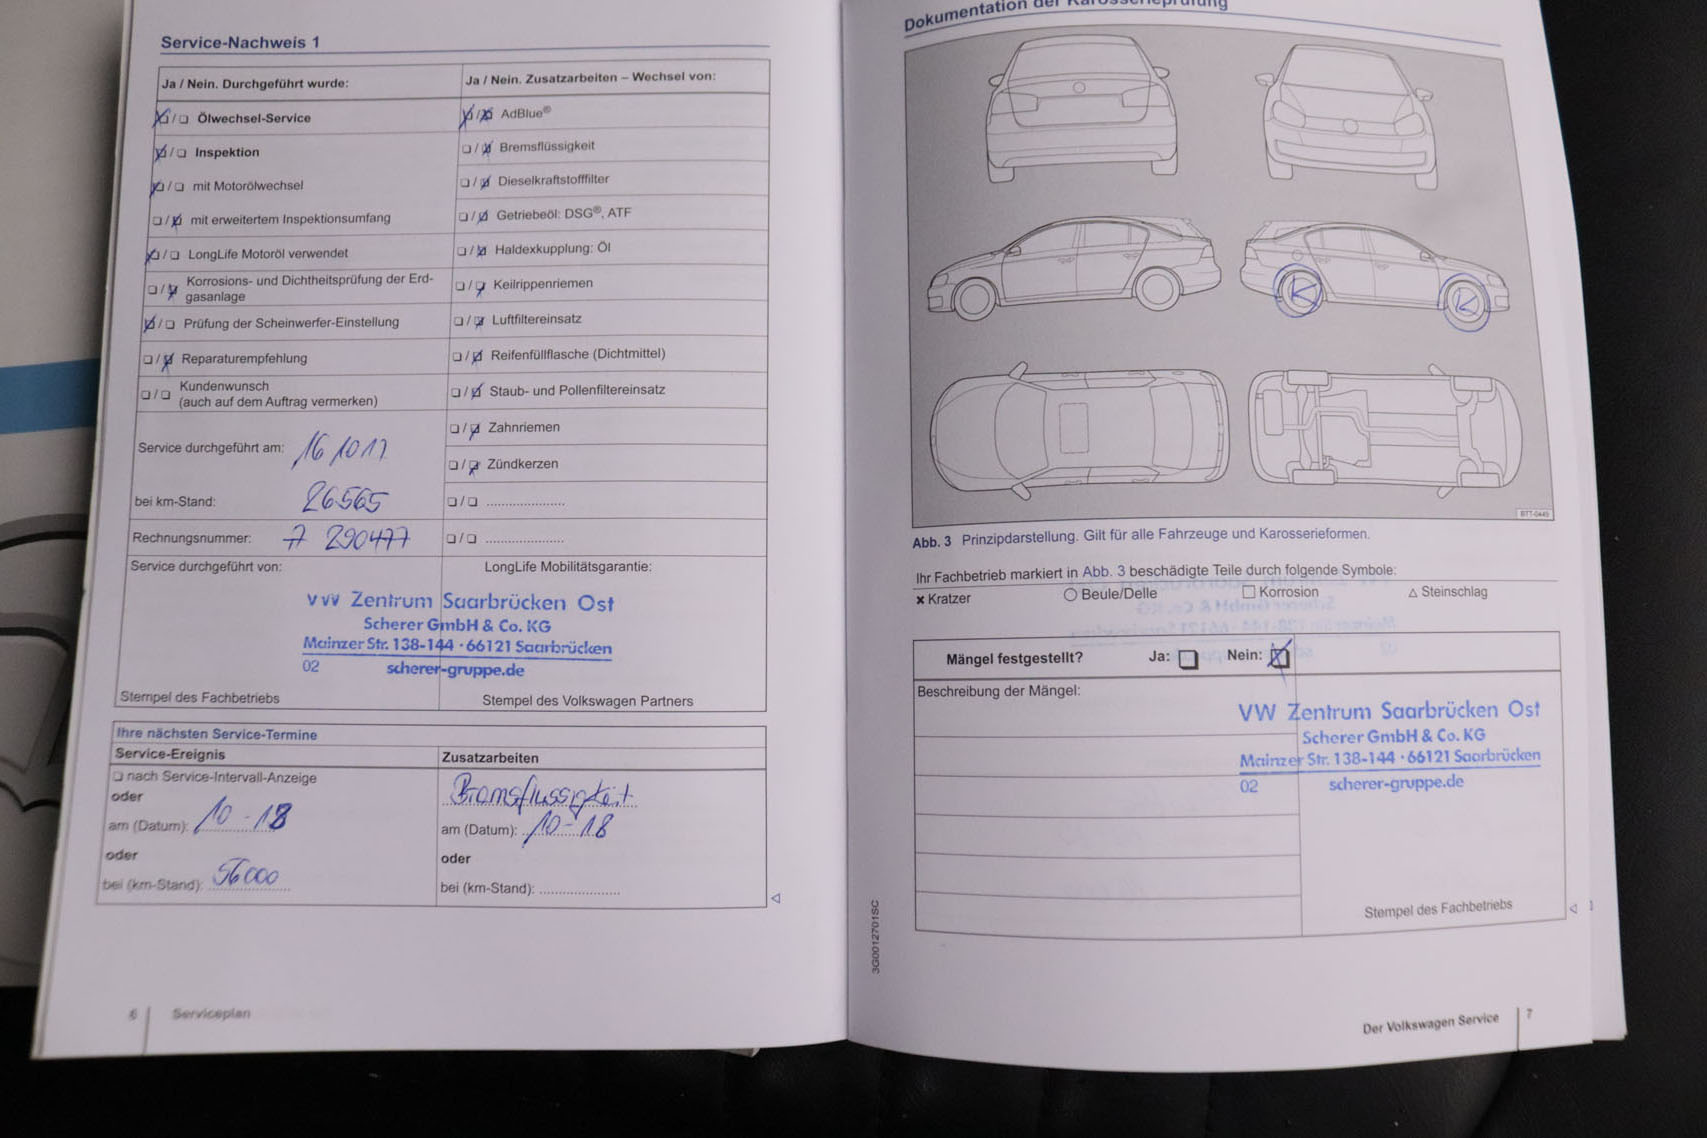 Service-Nachweis 1
Ja / Nein. Durchgeführt wurde:
Ja / Nein. Zusatzarbeiten – Wechsel von:
Ölwechsel-Service
AdBlue®
Inspektion
Bremsflüssigkeit
mit Motorölwechsel
Dieselkraftstofffilter
mit erweitertem Inspektionsumfang
Getriebeöl: DSG®, ATF
LongLife Motoröl verwendet
Haldexkupplung: Öl
Korrosions- und Dichtheitsprüfung der Erd-
gasanlage
Keilrippenriemen
Prüfung der Scheinwerfer-Einstellung
Luftfiltereinsatz
Reparaturempfehlung
Reifenfüllflasche (Dichtmittel)
Kundenwunsch
(auch auf dem Auftrag vermerken)
Staub- und Pollenfiltereinsatz
Zahnriemen
Service durchgeführt am: 16 10 17
Zündkerzen
bei km-Stand: 26565
Rechnungsnummer: 7 290477
Service durchgeführt von:
LongLife Mobilitätsgarantie:
VW Zentrum Saarbrücken Ost
Scherer GmbH & Co. KG
Mainzer Str. 138-144 · 66121 Saarbrücken
02 scherer-gruppe.de
Stempel des Fachbetriebs
Stempel des Volkswagen Partners
Ihre nächsten Service-Termine
Service-Ereignis
Zusatzarbeiten
nach Service-Intervall-Anzeige
Bremsflüssigkeit
oder
am (Datum): 10 - 18
am (Datum): 10 - 18
oder
oder
bei (km-Stand): 56000
bei (km-Stand):
6 Serviceplan
Dokumentation der Karosserieprüfung
BTT-0449
Abb. 3 Prinzipdarstellung. Gilt für alle Fahrzeuge und Karosserieformen.
Ihr Fachbetrieb markiert in Abb. 3 beschädigte Teile durch folgende Symbole:
Kratzer
Beule/Delle
Korrosion
Steinschlag
Mängel festgestellt? Ja: Nein:
Beschreibung der Mängel:
VW Zentrum Saarbrücken Ost
Scherer GmbH & Co. KG
Mainzer Str. 138-144 · 66121 Saarbrücken
02 scherer-gruppe.de
Stempel des Fachbetriebs
3G0012701SC
Der Volkswagen Service 7